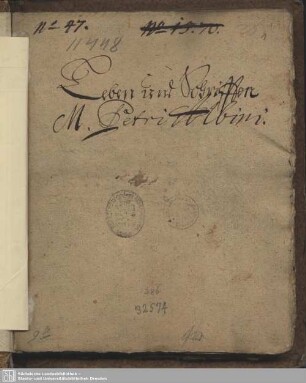 No 47. No 1370.
11448
Leben und Schrifften
M. Petri Albini.
32574
Sächsische Landesbibliothek -
Staats- und Universitätsbibliothek Dresden